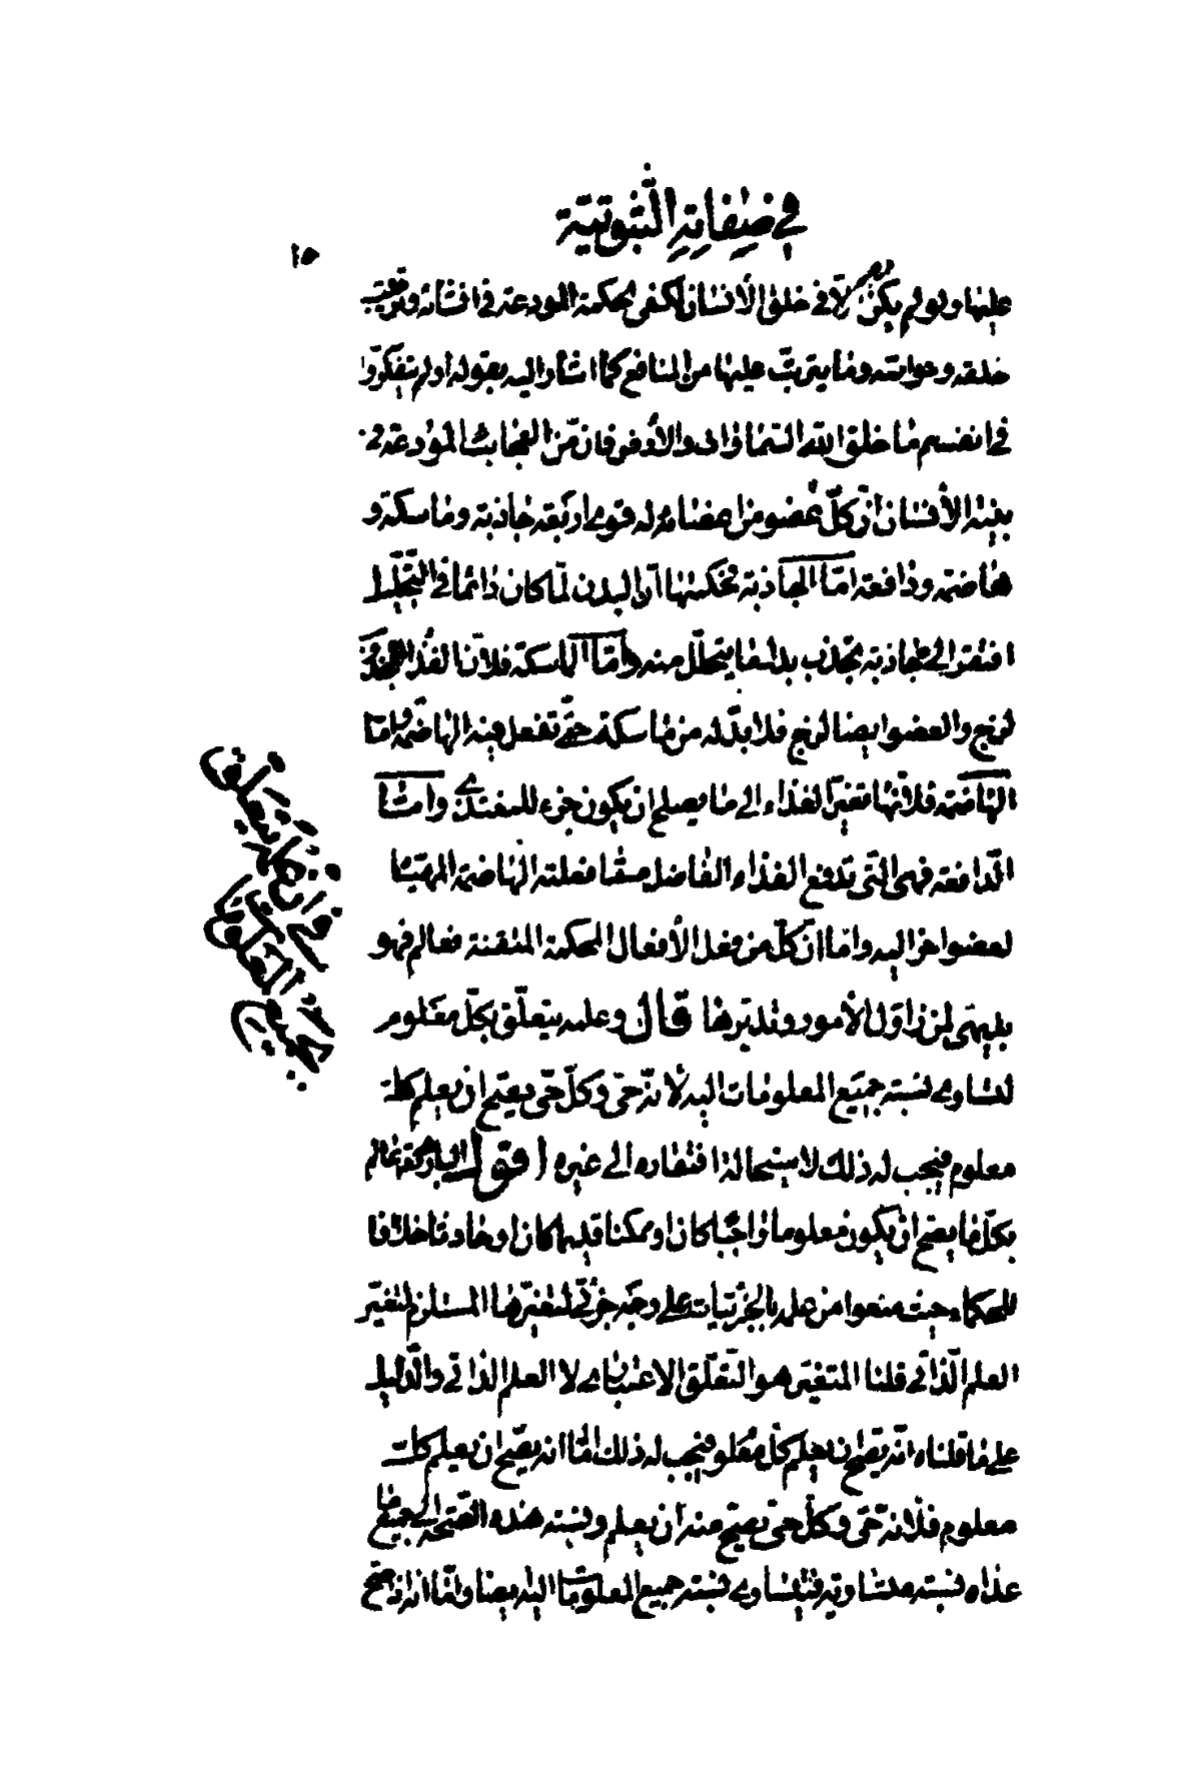 في صفاته الثبوتية
١٥
عليها ولو لم يكن الا في خلق الأنسان لكفى الحكمة المودعة في انشائه وترتيب
خلقه وحواسه وما يترتب عليها من المنافع كما اشار اليه بقوله اولم يتفكروا
في انفسهم ما خلق الله السماوات والأرض فان من العجائب المودعة في
بنية الأنسان ان كل عضو من اعضائه له قوى اربعة جاذبة وماسكة و
هاضمة ودافعة اما الجاذبة فحكمتها ان البدن لما كان دائما في التحليل
افتقر الى جاذبة تجذب بدل ما يتحلل منه واما الماسكة فلان الغذاء المجذوب
لزج والعضو ايضا لزج فلا بد له من ماسكة حتى تفعل فيه الهاضمة واما
الهاضمة فلانها تغير الغذاء الى ما يصلح ان يكون جزء للمغتذي واما
الدافعة فهي التي تدفع الغذاء الفاضل مما فعلته الهاضمة المهيا
لعضو اخر اليه واما ان كل من فعل الأفعال المحكمة المتقنة فعالم فهو
بديهي لمن زاول الأمور وتدبرها قال وعلمه يتعلق بكل معلوم
لتساوي نسبة جميع المعلومات اليه لأنه حي وكل حي يصح ان يعلم كل
معلوم فيجب له ذلك لاستحالة افتقاره الى غيره اقول الباري تعالى عالم
بكل ما يصح ان يكون معلوما واجبا كان او ممكنا قديما كان او حادثا خلافا
للحكماء حيث منعوا من علمه بالجزئيات على وجه جزئي لتغيرها المستلزم لتغير
العلم الذاتي قلنا المتغير هو التعلق الاعتباري لا العلم الذاتي والدليل
على ما قلناه انه يصح ان يعلم كل معلوم فيجب له ذلك اما انه يصح ان يعلم كل
معلوم فلأنه حي وكل حي يصح منه ان يعلم ونسبة هذه الصحة الى جميع ما
عداه نسبة متساوية فيتساوى نسبة جميع المعلومات اليه ايضا واما انه اذا صح
في ان علمه يتعلق
بجميع المعلومات